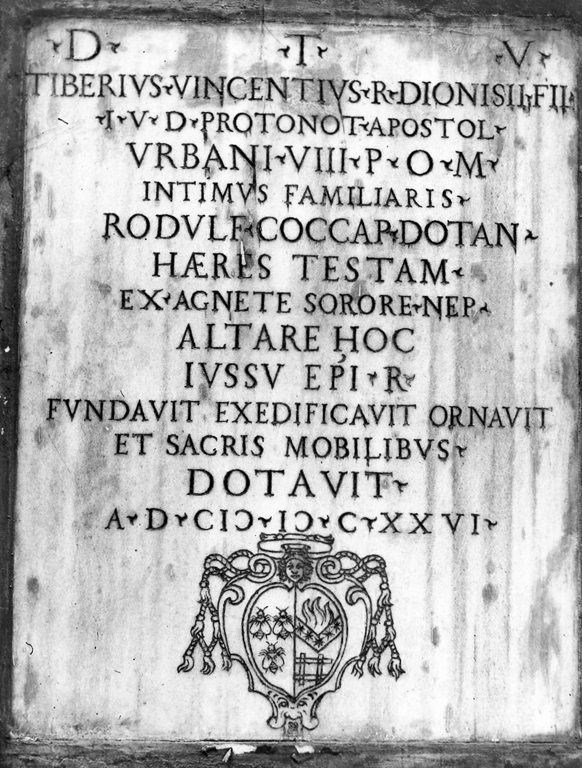 D · T · V
TIBERIVS·VINCENTIVS·R·DIONISII·FIL·
I·V·D·PROTONOT·APOSTOL·
VRBANI·VIII·P·O·M·
INTIMVS FAMILIARIS·
RODVLF·COCCAP·DOTAN·
HÆRES TESTAM·
EX·AGNETE SORORE·NEP·
ALTARE HOC
IVSSV EPI·R·
FVNDAVIT EXEDIFICAVIT ORNAVIT
ET SACRIS MOBILIBVS·
DOTAVIT·
A·D·CIƆ·IƆ·C·XXVI·